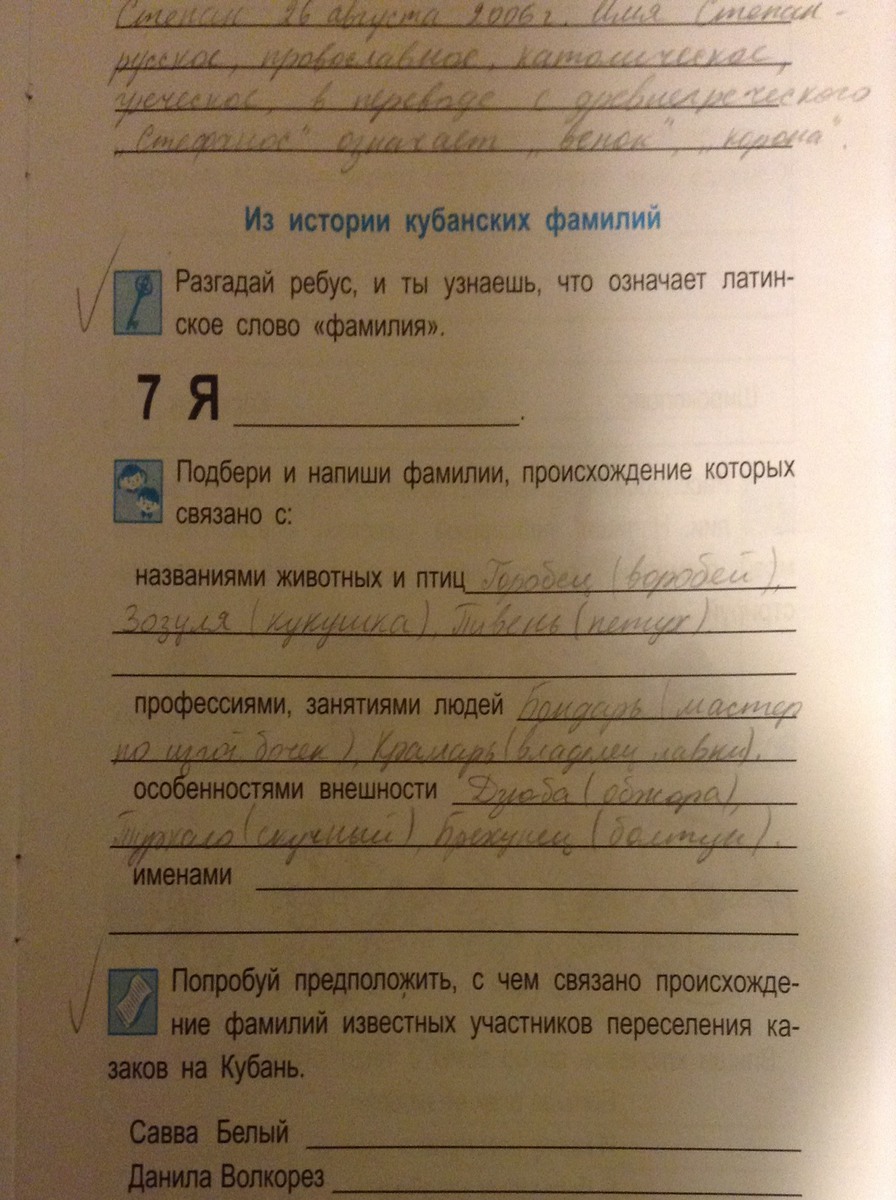 Степан 26 августа 2006 г. Имя Степан -
русское, провославное, католическое,
греческое, в переводе с древнегреческого
„Стефанос" означает „венок", „корона".
Из истории кубанских фамилий
Разгадай ребус, и ты узнаешь, что означает латин-
ское слово «фамилия».
7 Я .
Подбери и напиши фамилии, происхождение которых
связано с:
названиями животных и птиц Горобец (воробей),
Зозуля (кукушка), Пивень (петух).
профессиями, занятиями людей Бондарь (мастер
по изгот. бочек), Крамарь (владелец лавки).
особенностями внешности Дзюба (обжора),
(скучный), Брехунец (болтун).
именами
Попробуй предположить, с чем связано происхожде-
ние фамилий известных участников переселения ка-
заков на Кубань.
Савва Белый
Данила Волкорез